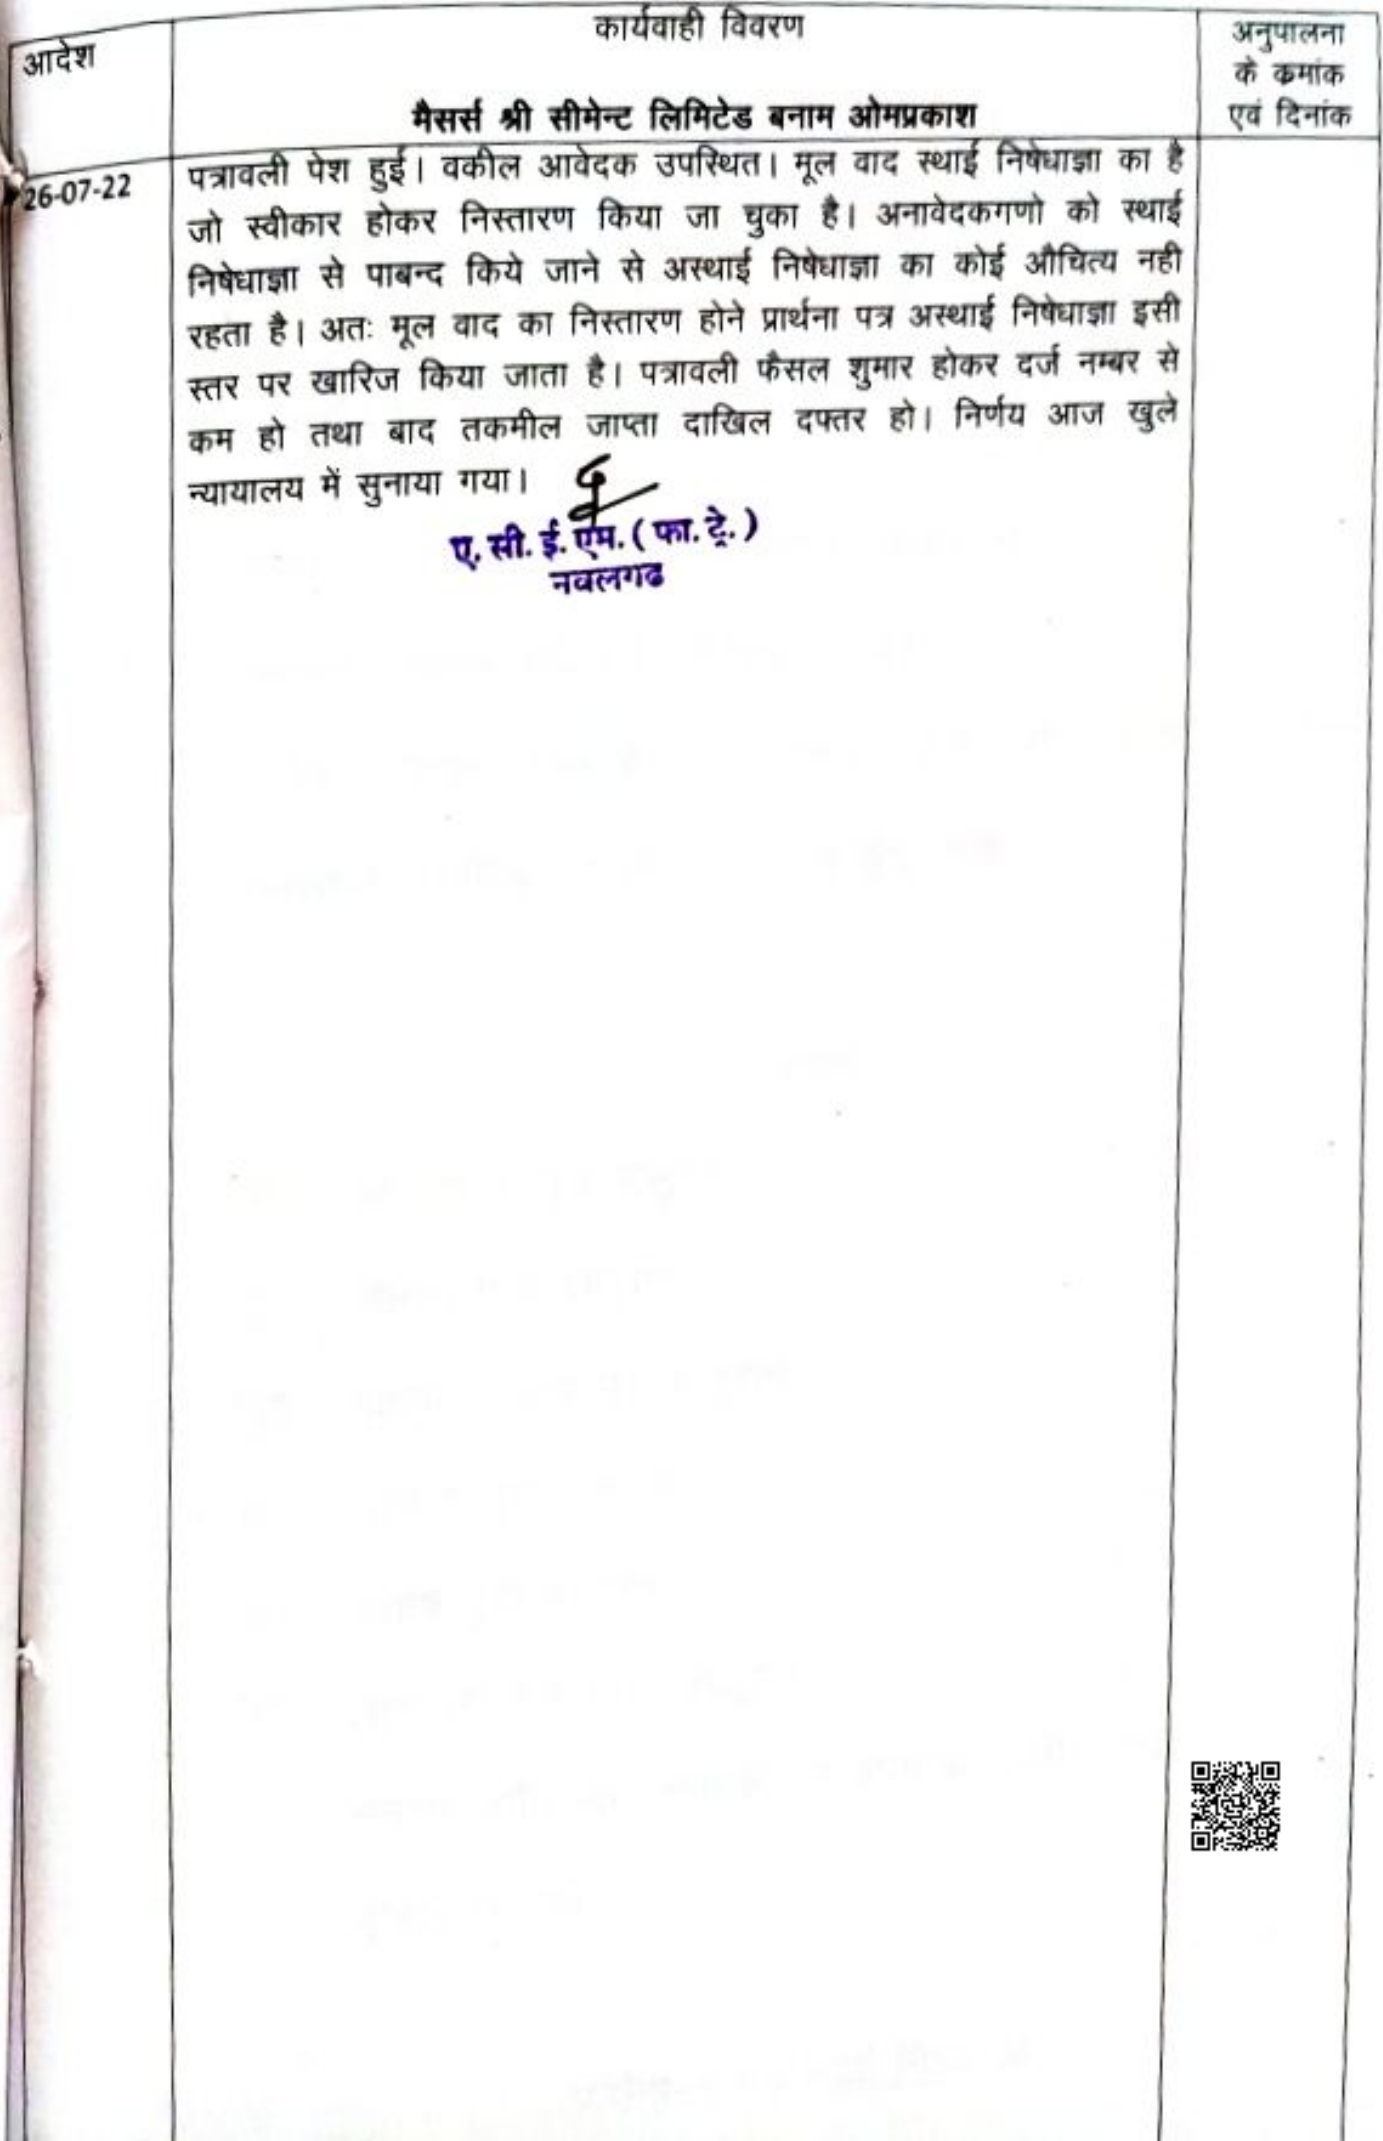 कार्यवाही विवरण
आदेश
अनुपालना
के कमांक
एवं दिनांक
मैसर्स श्री सीमेन्ट लिमिटेड बनाम ओमप्रकाश
26-07-22
पत्रावली पेश हुई। वकील आवेदक उपस्थित। मूल वाद स्थाई निषेधाज्ञा का है
जो स्वीकार होकर निस्तारण किया जा चुका है। अनावेदकगणो को स्थाई
निषेधाज्ञा से पाबन्द किये जाने से अस्थाई निषेधाज्ञा का कोई औचित्य नही
रहता है। अतः मूल वाद का निस्तारण होने प्रार्थना पत्र अस्थाई निषेधाज्ञा इसी
स्तर पर खारिज किया जाता है। पत्रावली फैसल शुमार होकर दर्ज नम्बर से
कम हो तथा बाद तकमील जाप्ता दाखिल दफ्तर हो। निर्णय आज खुले
न्यायालय में सुनाया गया।
ए. सी. ई. एम. ( फा. ट्रे. )
नवलगढ